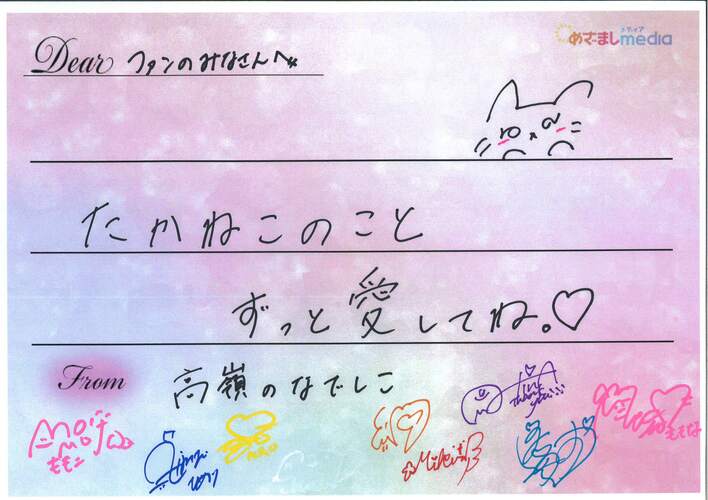 めざましmedia
メディア
Dear ファンのみなさんへ
たかねこのこと
ずっと愛してね。♡
From 高嶺のなでしこ
ももこ
thank you!!!